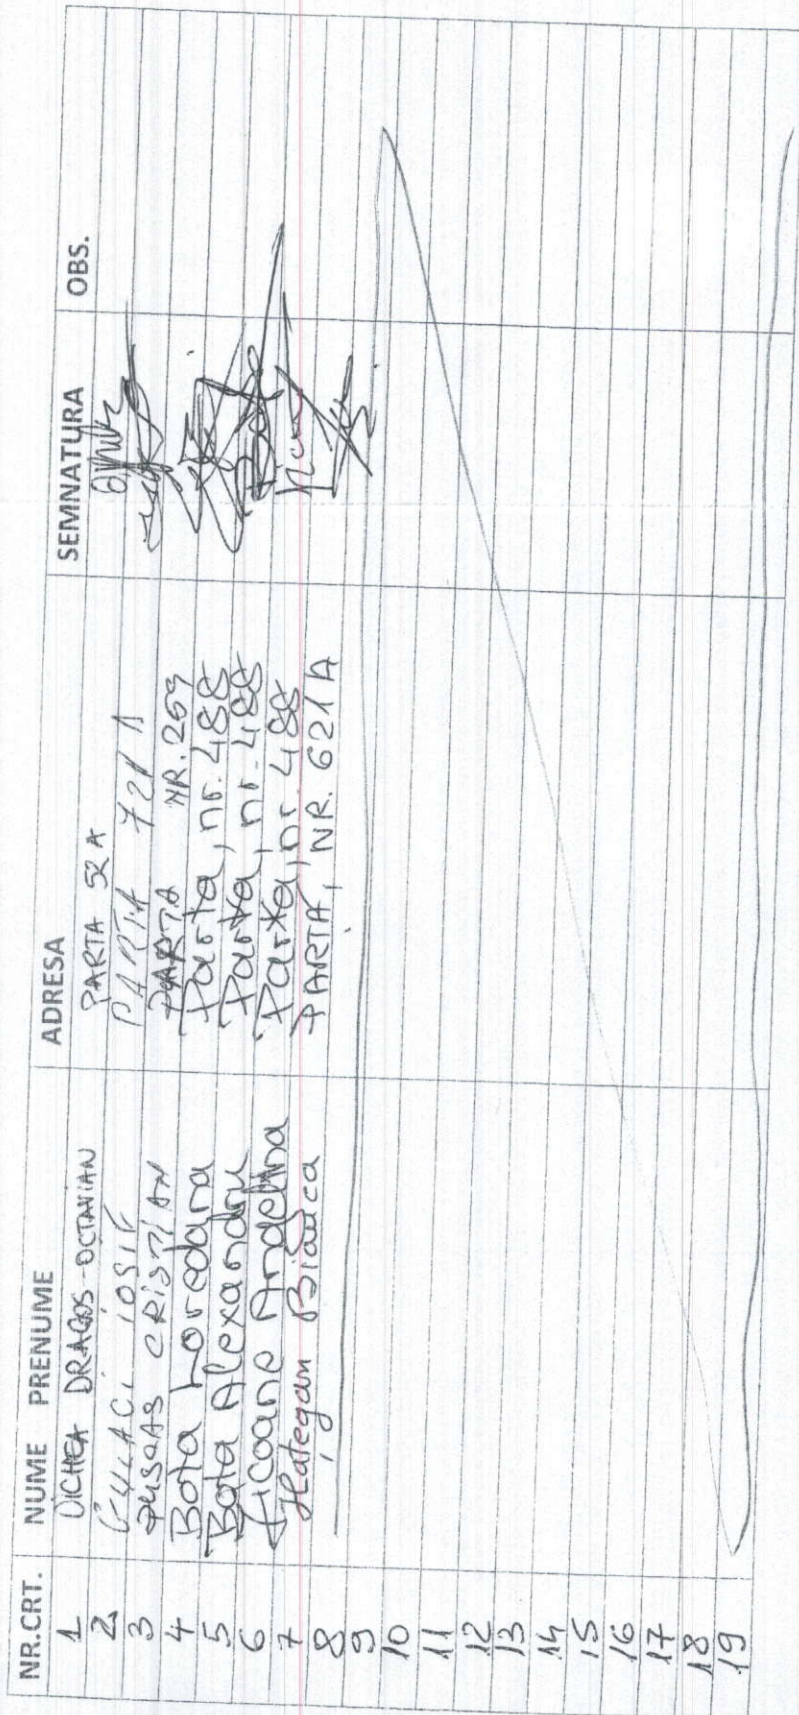 NR.CRT. NUME PRENUME ADRESA SEMNATURA OBS.
1 DICHEA DRAGOS-OCTAVIAN PARTA 52 A
2 IOSIF PARTA
3 CRISTIAN PARTA NR. 269
4 Bota Loredana Parta, nr. 488
5 Bota Alexandru Parta, nr. 488
6 Ficoane Andelina Parta, nr. 488
7 Hategan Bianca PARTA, NR. 621 A
8
9
10
11
12
13
14
15
16
17
18
19